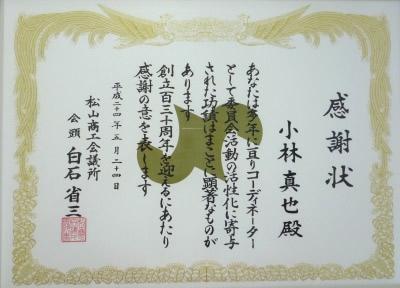 感謝状
小林真也殿
あなたは多年に亘りコーディネーター
として委員会活動の活性化に寄与
された功績はまことに顕著なものが
あります
創立百三十周年を迎えるにあたり
感謝の意を表します
平成二十四年五月二十四日
松山商工会議所
会頭 白石省三